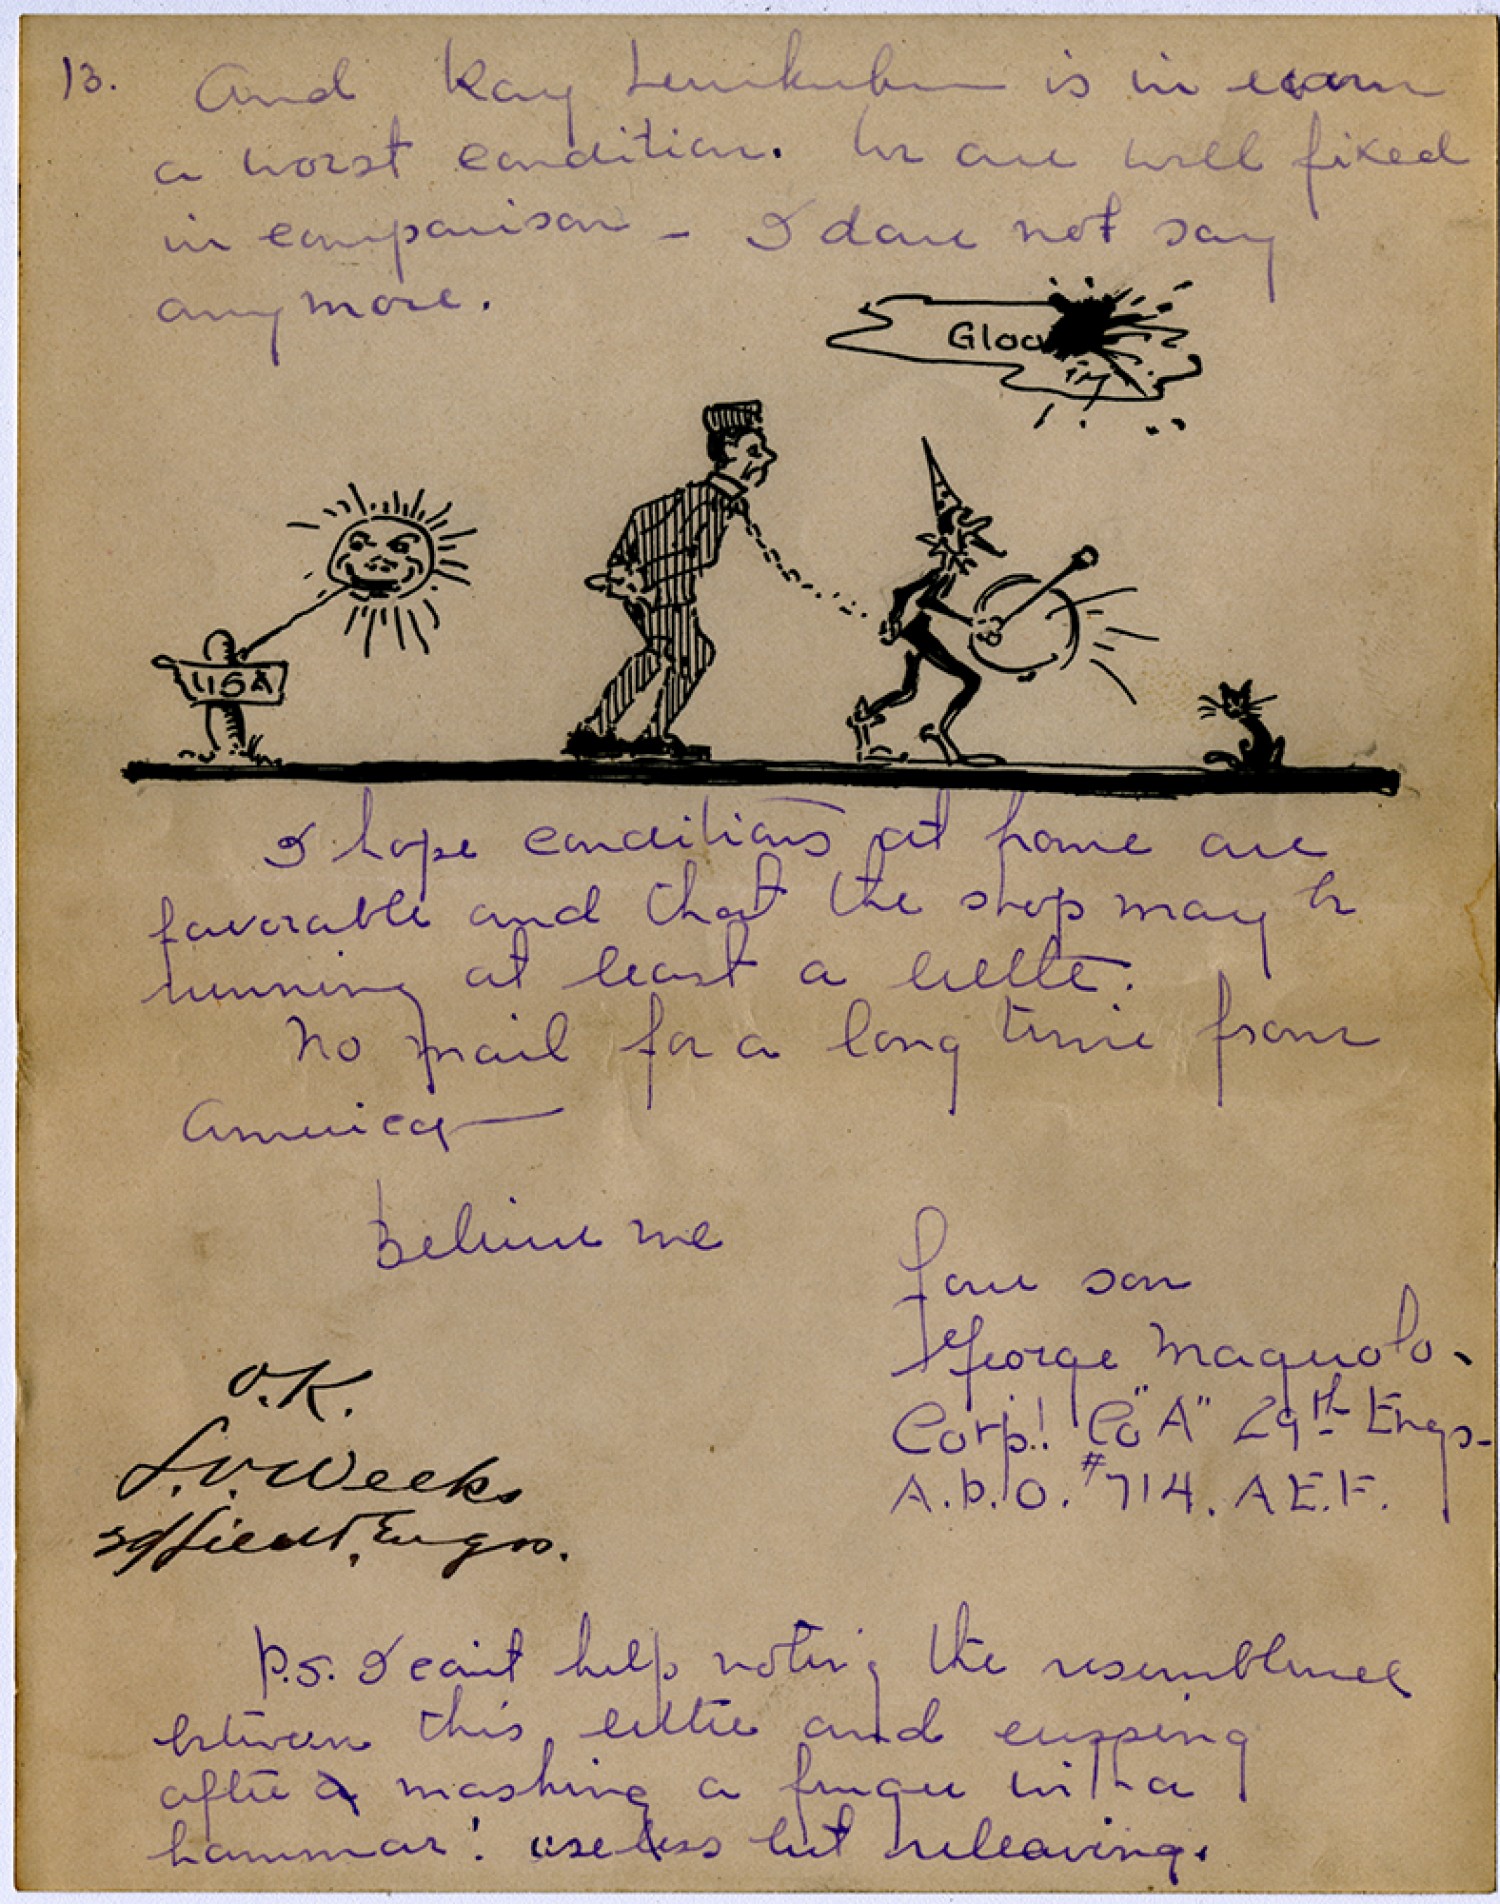 13. And Kay is in
a worst condition. We are well fixed
in comparison - I dare not say
anymore.
Gloo
USA
I hope conditions at home are
favorable and that the shop may be
running at least a little.
No mail for a long time from
America
Believe me
Your son
George Magnolo.
Corp'l. Co "A" 29th Engs.
A.P.O. #714. A.E.F.
O.K.
Weeks
Lieut. Engrs.
P.S. I can't help noting the resemblence
between this letter and cussing
after mashing a finger with a
hammar! useless but releaving.